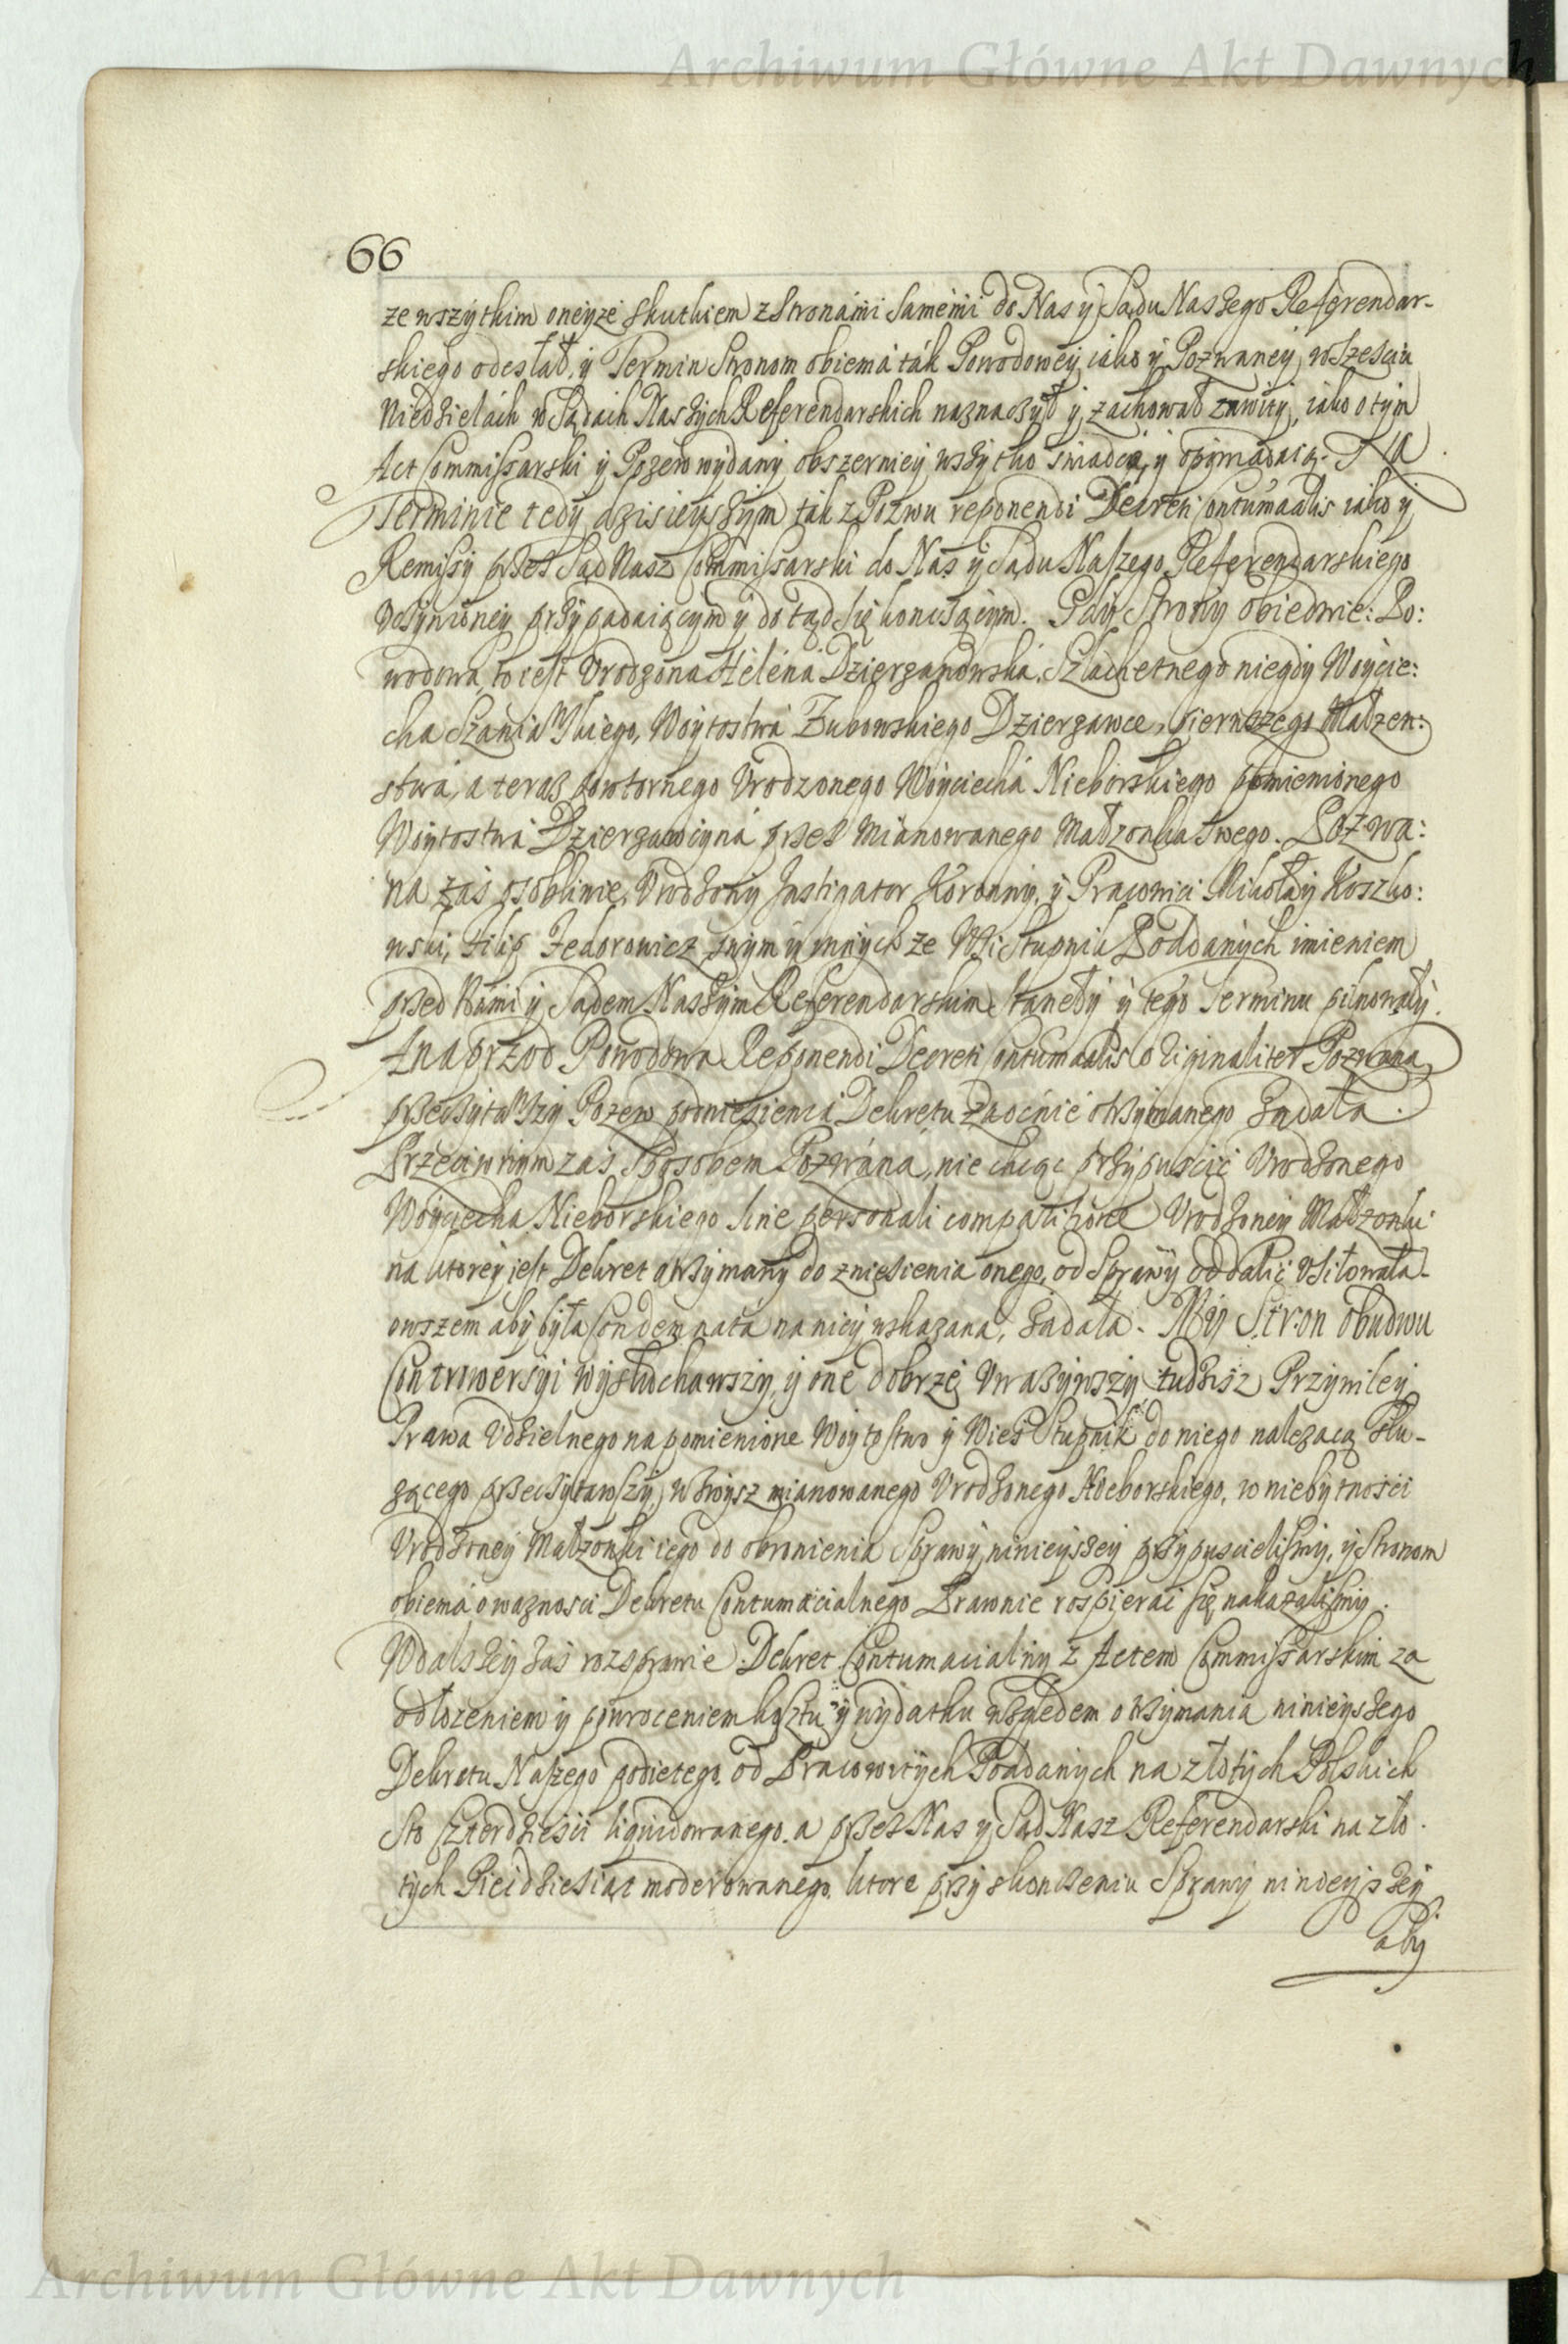 Archiwum Główne Akt Dawnych
66
ze wszytkim oneyze skutkiem z Stronámi Samémi do Nas y Sądu Naszego Referendar-
skiego odesłał, y Termin Stronom obiemá ták Powodowey iako y Pozwaney, w Szesciu
Niedzielách w Sądách Naszych Referendarskich naznaczył y zachował zawity, iako o tym
Act Commissarski y Pozew wydany obszerniey wszytko swiadczą y opiewaiąc. Na
Terminie tedy dzisieyszym ták z Pozwu reponendi Decreti Contumacialis iako y
Remissy przez Sąd Nasz Commissarski do Nas y Sądu Naszego Referendarskiego
Uczynioney przypadaiącym y do tąd się konczącym. Gdy Strony obiedwie: Po:
wodowa to iest Urodzona Heléná Dzierzanowska Szlachetnego niegdy Woycie:
cha Szaniawskiego, Woytostwá Zubowskiego Dzierzawce, pierwszego Małzen:
stwá, a teraz powtornego Urodzonego Woyciechá Nieborskiego pomienionego
Woytostwá Dzierzawczyná przez mianowanego Małzonka swego. Pozwa:
na zás osobliwie, Urodzony Instigator Koronny, y Pracowici Mikołay Koszko:
wski, Filip Fedorowicz swym y innych ze Wsi Stupnik Poddanych imieniem
przed Námi y Sądem Naszym Referendarskim Stanęły y tego Terminu pilnowały.
A naprzod Powodowa Reponendi Decreti Contumacialis originaliter Pozwana
przeczytawszy Pozew podniesienia Dekretu zaocznie otrzymanego ządała.
Przeciwnym zás Sposobem Pozwáná, nie chcąc przypuscić Urodzonego
Woyciecha Nieborskiego sine personali comparitione Urodzoney Małzonki
na ktorey iest Dekret otrzymany do zniesienia onego, od Sprawy oddalić Usiłowała-
owszem aby była Condemnata na niey wskazana, ządała. My Stron obudwu
Controwersyi wysłuchawszy, y one dobrze Uwazywszy tudziesz Przywiley
Prawa Udzielnego na pomienione Woytostwo y Wies Stupnik do niego nalezącą Słu-
zącego przeczytawszy, wzwysz mianowanego Urodzonego Nieborskiego, w niebytnosci
Urodzoney Małzonki iego do obronienia Sprawy ninieyszey przypuscilismy, y Stronom
obiemá o waznosci Dekretu Contumacialnego Prawnie rospierać się nakazalismy.
W dalszey zás rozsprawie Dekret Contumacialny z Actem Commissarskim za
odłozeniem y powroceniem kosztu y wydatku względem otrzymania ninieyszego
Dekretu Naszego podiętego od Pracowitych Poddanych na złotych Polskich
Sto Czterdziesci liquidowanego, a przez Nas y Sąd Nasz Referendarski na zło-
tych Piećdziesiąt moderowanego, ktore przy skonczeniu Sprawy ninieyszey
aby
Archiwum Główne Akt Dawnych